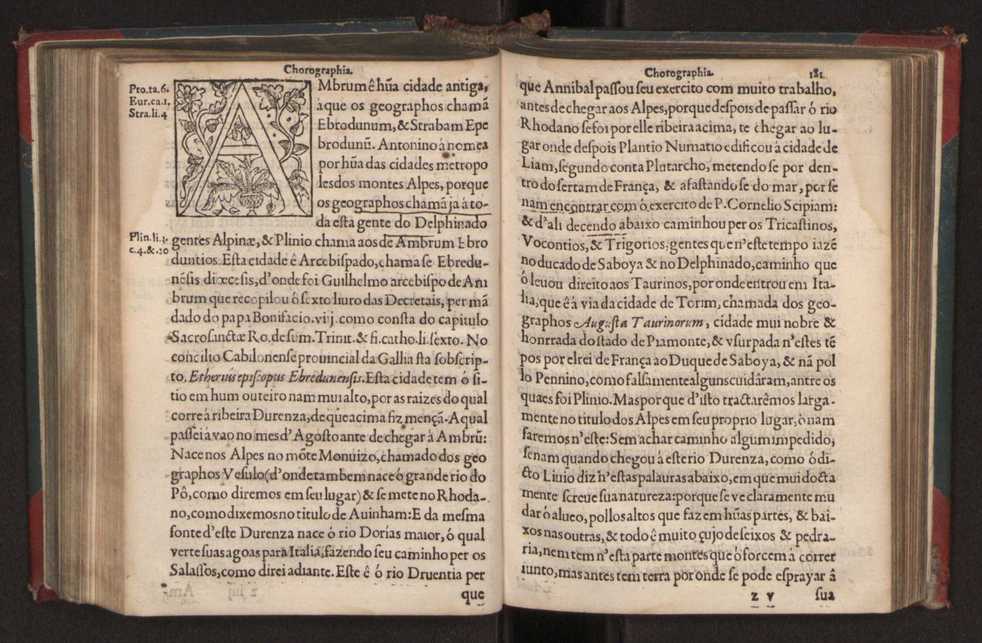 Chorographia.
Pto.ta.6.
Eur.ca.1.
Stra.li.4
AMbrum ê hũa cidade antiga,
à que os geographos chamã
Ebrodunum, & Strabam Epe
brodunũ. Antonino à nomea
por hũa das cidades metropo
lesdos montes Alpes, porque
os geographos chamã ja à to-
da esta gente do Delphinado
Plin.li.3.
c.4.&.20
gentes Alpinæ, & Plinio chama aos de Ambrum Ebro
duntios. Esta cidade ê Arcebispado, chama se Ebredu-
nẽsis diœcesis, d'onde foi Guilhelmo arcebispo de Am
brum que recopilou ô sexto liuro das Decretais, per mã
dado do papa Bonifacio.vij. como consta do capitulo
Sacrosanctæ Ro. de sum. Trinit. & fi. catho. li. sexto. No
concilio Cabilonense prouincial da Gallia sta sobscrip-
to, Etherius episcopus Ebredunensis. Esta cidade tem ô si-
tio em hum outeiro nam mui alto, por as raizes do qual
corre â ribeira Durenza, de que acima fiz mençã. A qual
passei à vao no mes d'Agosto ante de chegar â Ambrũ:
Nace nos Alpes no mõte Monuizo, chamado dos geo
graphos Vesulo (d'onde tambem nace ô grande rio do
Pô, como diremos em seu lugar) & se mete no Rhoda-
no, como dixemos no titulo de Auinham: E da mesma
fonte d'este Durenza nace ô rio Dorias maior, ô qual
verte suas agoas para Italia, fazendo seu caminho per os
Salassos, como direi adiante. Este ê ô rio Druentia per
que
Chorographia. 181.
que Annibal passou seu exercito com muito trabalho,
antes de chegar aos Alpes, porque despois de passar ô rio
Rhodano se foi por elle ribeira acima, te chegar ao lu-
gar onde despois Plantio Numatio edificou â cidade de
Liam, segundo conta Plutarcho, metendo se por den-
tro do sertam de França, & afastando se do mar, por se
nam encontrar com ô exercito de P. Cornelio Scipiam:
& d'ali decendo abaixo caminhou per os Tricastinos,
Vocontios, & Trigorios, gentes que n'este tempo iazẽ
no ducado de Saboya & no Delphinado, caminho que
ô leuou direito aos Taurinos, por onde entrou em Ita-
lia, que ê â via da cidade de Torim, chamada dos geo-
graphos Augusta Taurinorum, cidade mui nobre &
honrrada do stado de Piamonte, & vsurpada n'estes tẽ
pos por el rei de França ao Duque de Saboya, & nã pol
lo Pennino, como falsamente alguns cuidâram, antre os
quaes foi Plinio. Mas porque d'isto tractarêmos larga-
mente no titulo dos Alpes em seu proprio lugar, ô nam
faremos n'este: Sem achar caminho algum impedido,
senam quando chegou â este rio Durenza, como ô di-
cto Liuio diz n'estas palauras abaixo, em que mui docta
mente screue sua natureza: porque se ve claramente mu
dar ô alueo, pollos altos que faz em hũas partes, & bai-
xos nas outras, & todo ê muito çujo de seixos & pedra-
ria, nem tem n'esta parte montes que ô forcem â correr
iunto, mas antes tem terra por onde se pode esprayar â
z v sua